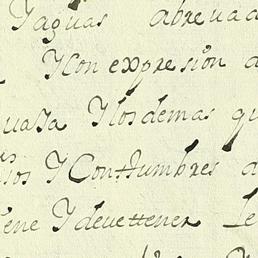 Yaguas abreuad
Y Con expresion d
uassa Y los demas qu
sos Y Costumbres d
iene Y deue ttener Le